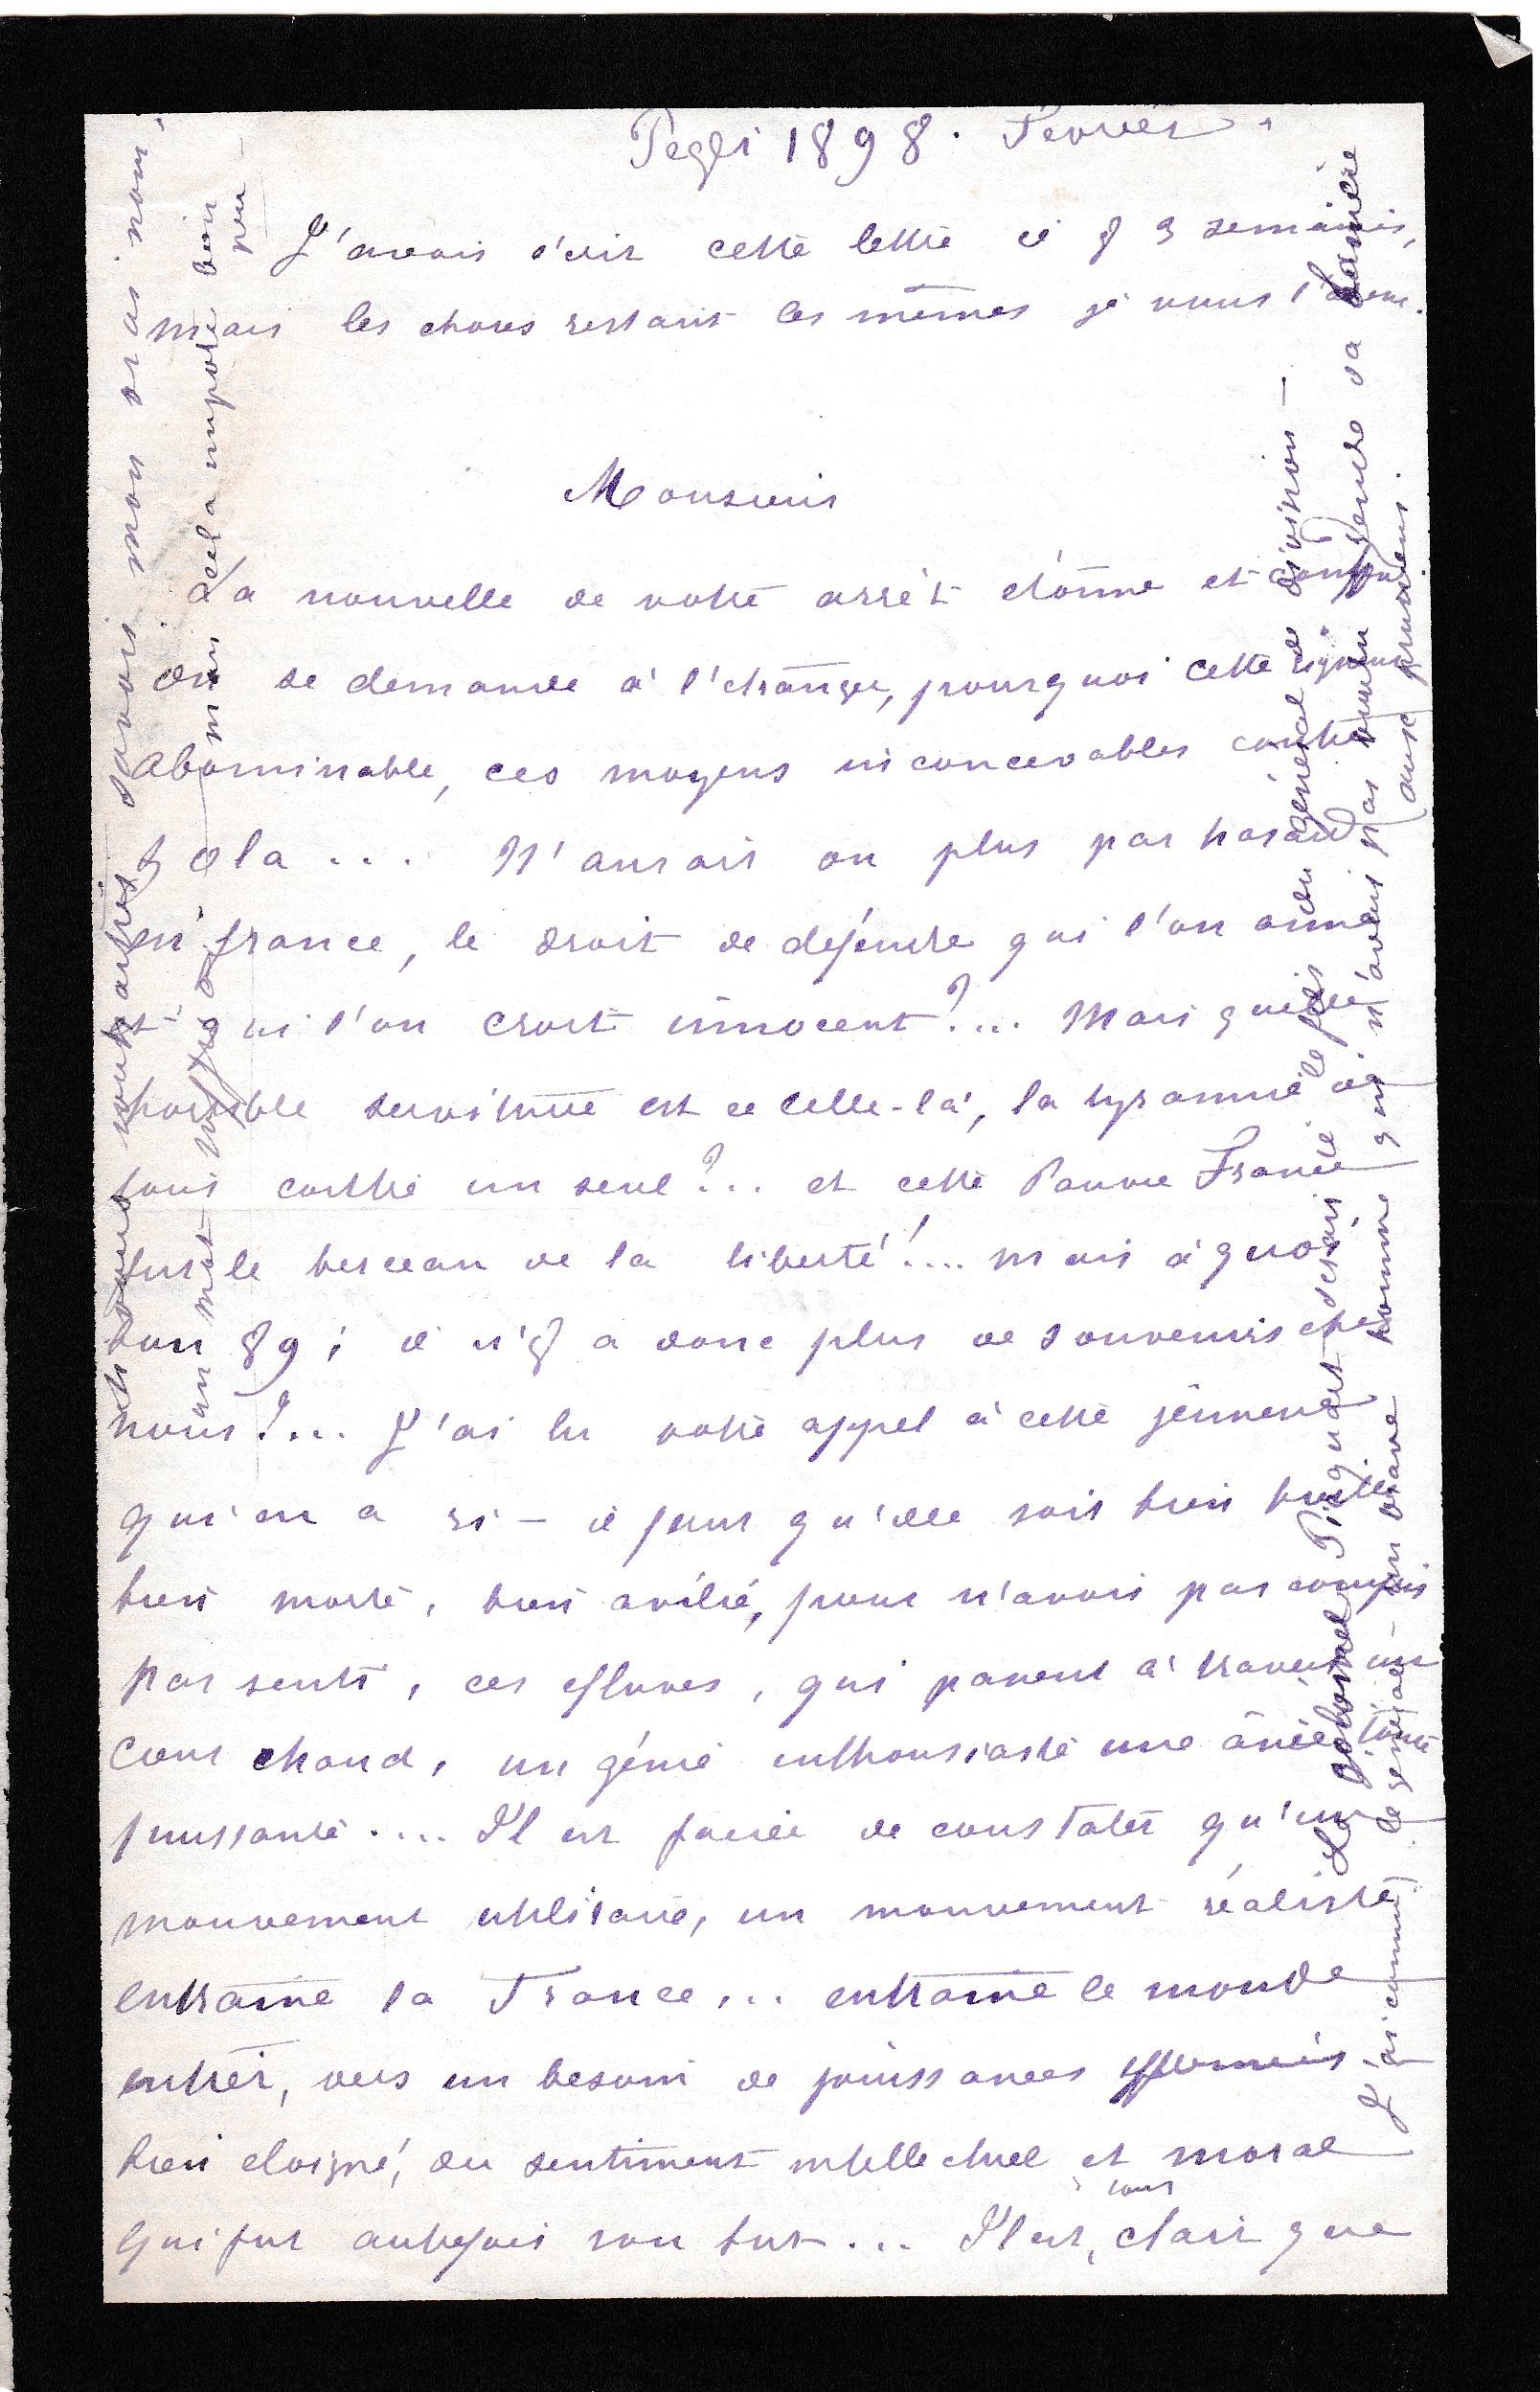 Pegli 1898. Fevrier.
J'avais écrit cette lettre il y 3 semaines,
mais les choses restant les mêmes je vous l'envoie.
Monsieur
La nouvelle de votre arrêt étonne et
on se demande à l'étranger, pourquoi cette rigueur
abominable, ces moyens inconcevables contre
Zola... N'aurait on plus par hasard
en france, le droit de défendre qui l'on aime
et qui l'on croit innocent?... Mais quelle
horrible servitude est ce celle-là, la tyrannie de
tous contre un seul?.. et cette Pauvre France
fut le berceau de la liberté!.... mais à quoi
bon 89; il n'y a donc plus de souvenirs chez
nous?... J'ai lu votre appel à cette jeunesse
qui en a ri - il faut qu'elle soit bien
bien morte, bien avilie, pour n'avoir pas compris
pas senti, ces effluves, qui parent à travers un
cœur chaud, un génie enthousiaste une âme toute
puissante.... Il est facile de constater qu'un
mouvement utilitaire, un mouvement réaliste
entraîne la France... entraîne le monde
entier, vers un besoin de jouissances effrénées,
bien eloigné, du sentiment intellectuel et moral
qui fut autrefois son but... Il est, clair que
tout
si vous voulez savoir mon vrai nom,
un mot suffira
mais cela importe bien
peu
Le Colonel Picquart serait le fils du général de division —
J'ai connu le général - un brave homme qui n'avait pas voulu vendre sa
aux prussiens.